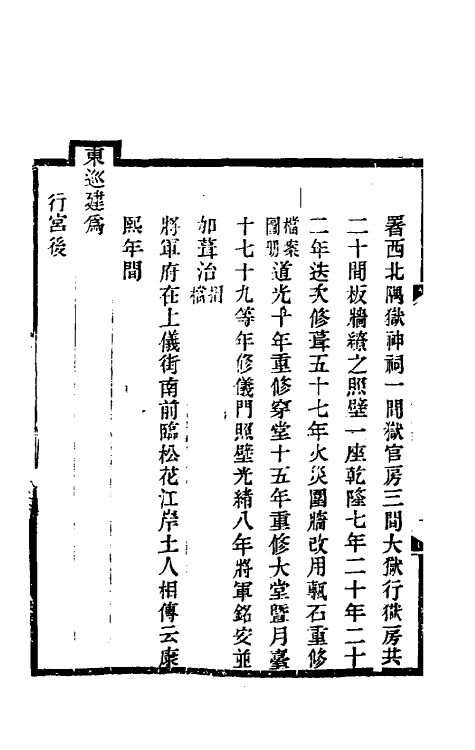 署西北隅獄神祠一間獄官房三間大獄行獄房共
二十間板牆繚之照壁一座乾隆七年二十年二十
二年迭次修葺五十七年火災圍牆改用甎石重修
檔案
圖冊
道光十年重修穿堂十五年重修大堂暨月臺
十七十九等年修儀門照壁光緒八年將軍銘安並
加葺治
檔
將軍府在上儀街南前臨松花江岸土人相傳云康
熙年間
東巡建爲
行宮後